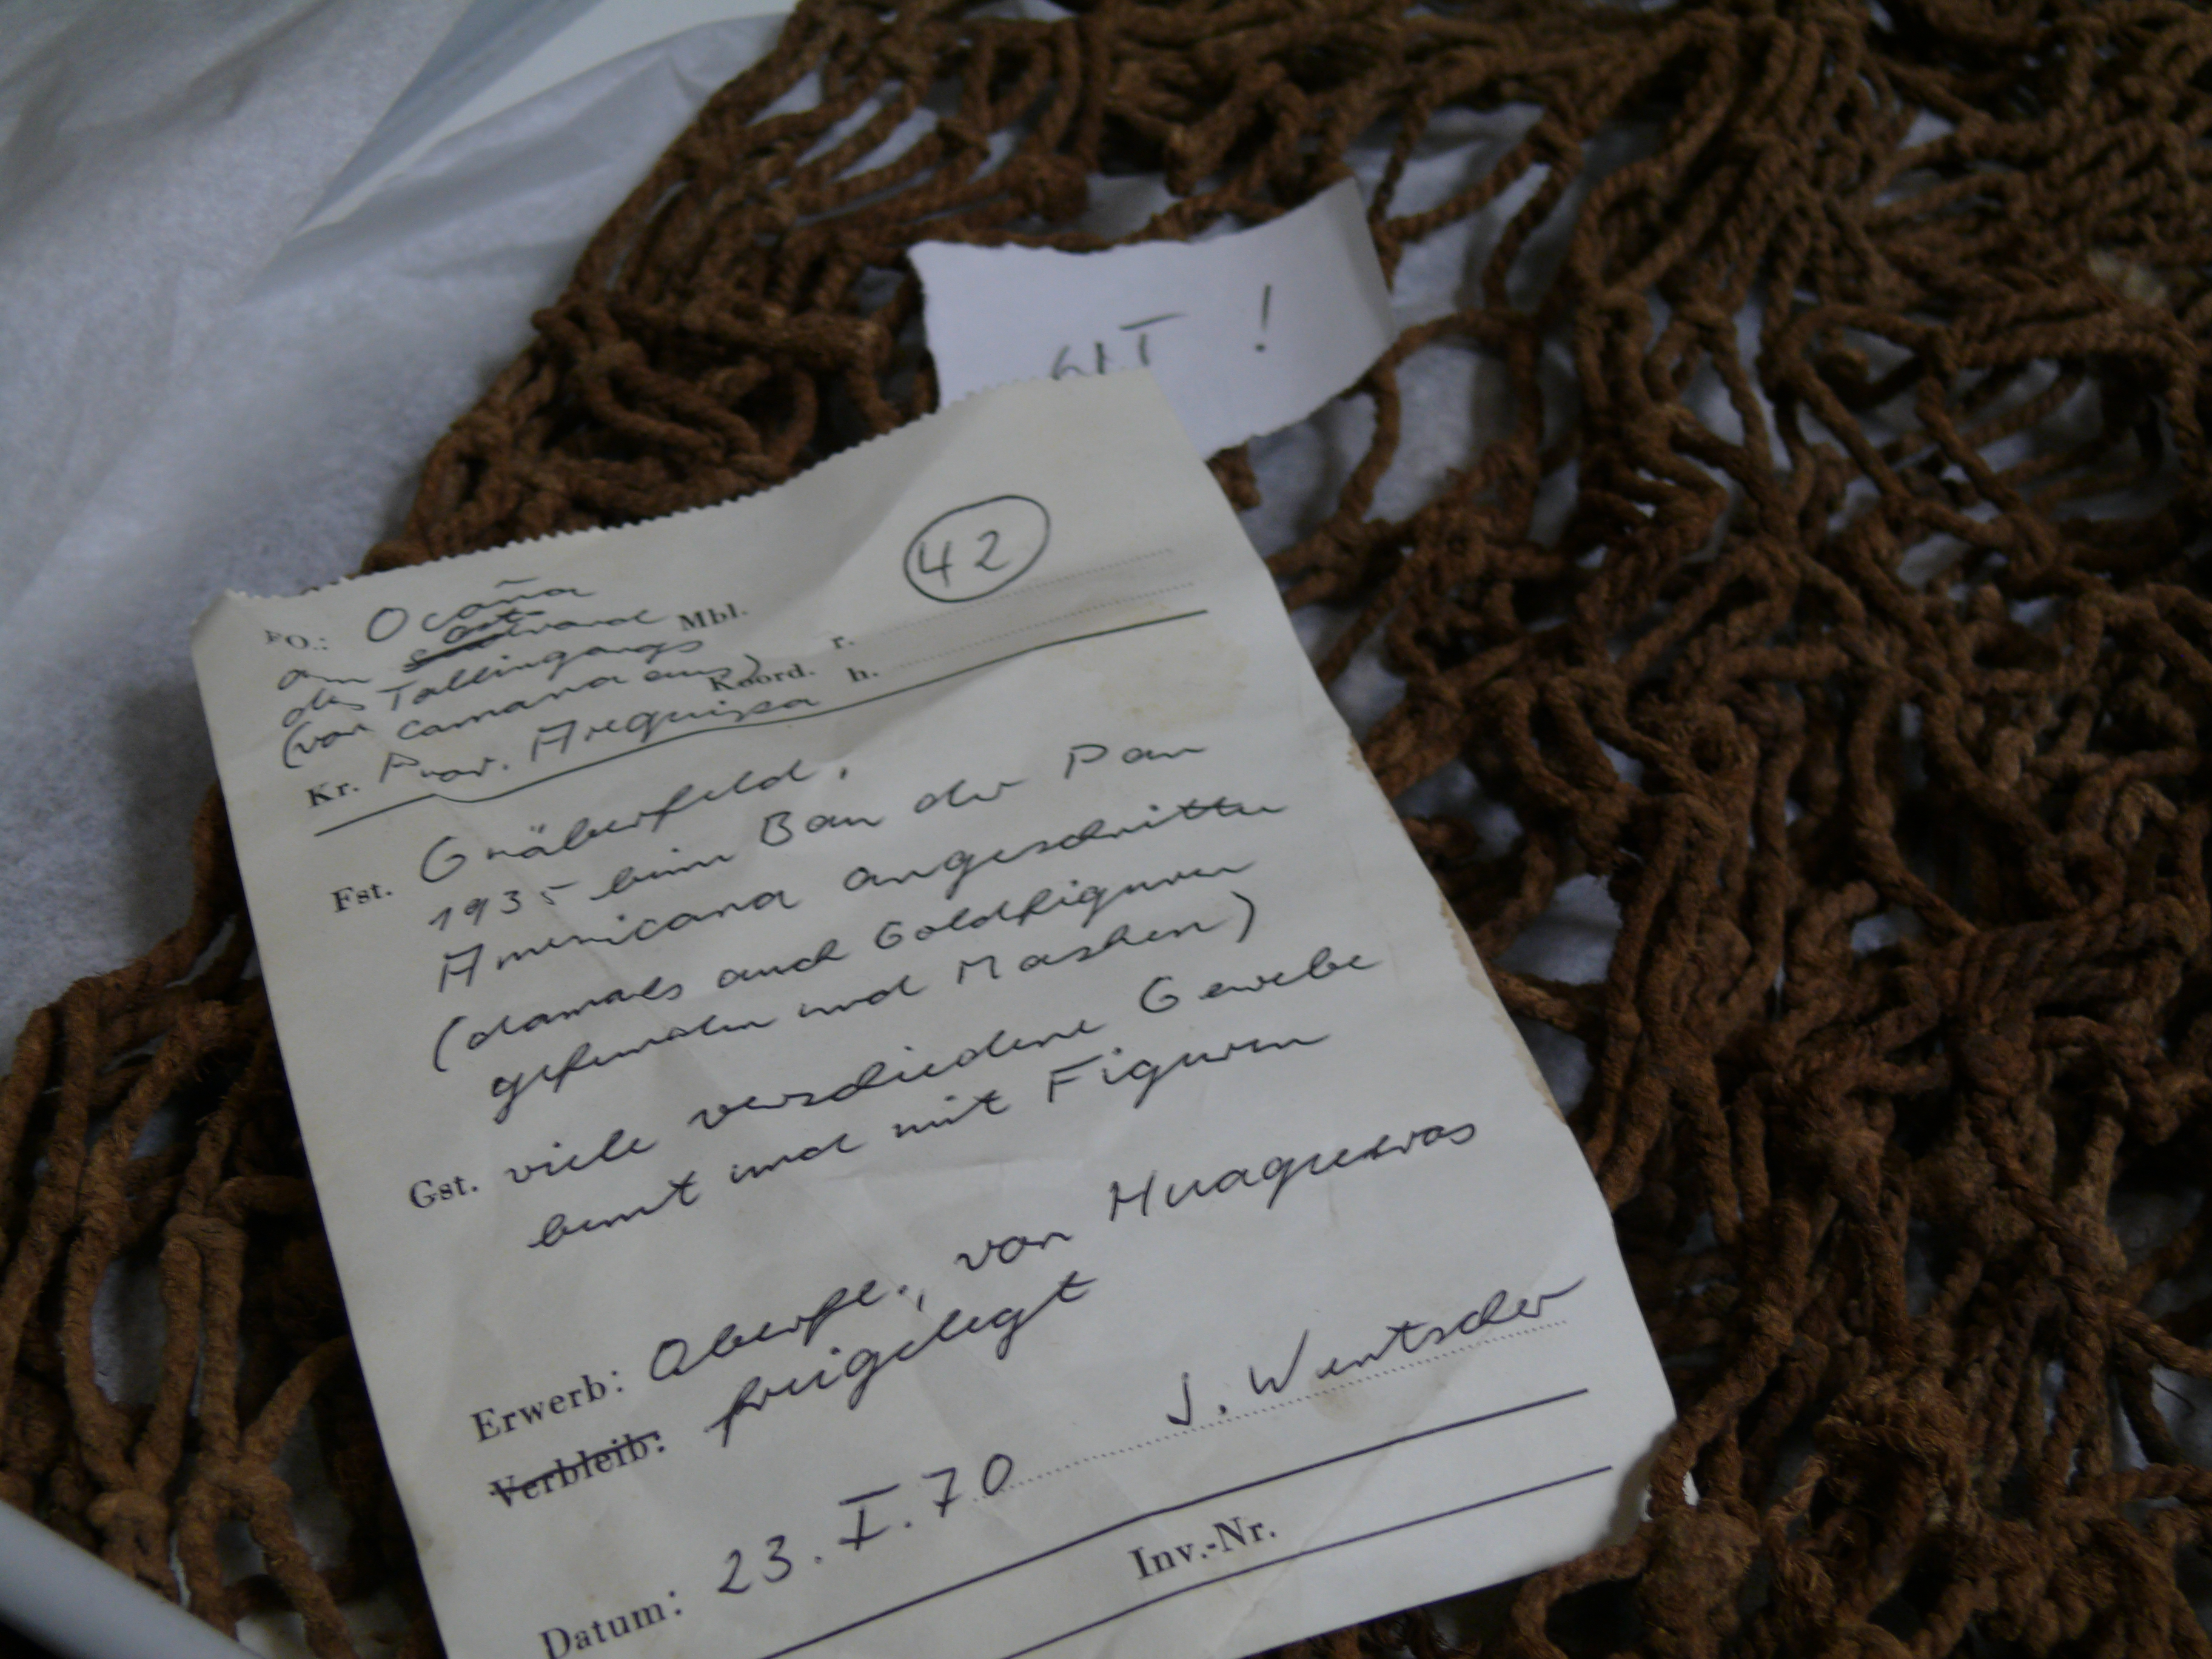 !
42
FO.: Ocaña
am ostrand Mbl.
des Talleingangs r.
(von Camana aus) Koord. h.
Kr. Prov. Arequipa
Fst. Gräberfeld,
1935 beim Bau der Pan
Americana angeschnitten
(damals auch Goldfiguren
gefunden und Masken)
Gst. viele verschiedene Gewebe
bunt und mit Figuren
Erwerb: Oberfl., von Huaqueros
Verbleib: freigelegt
Datum: 23. I. 70 J. Wentscher
Inv.-Nr.